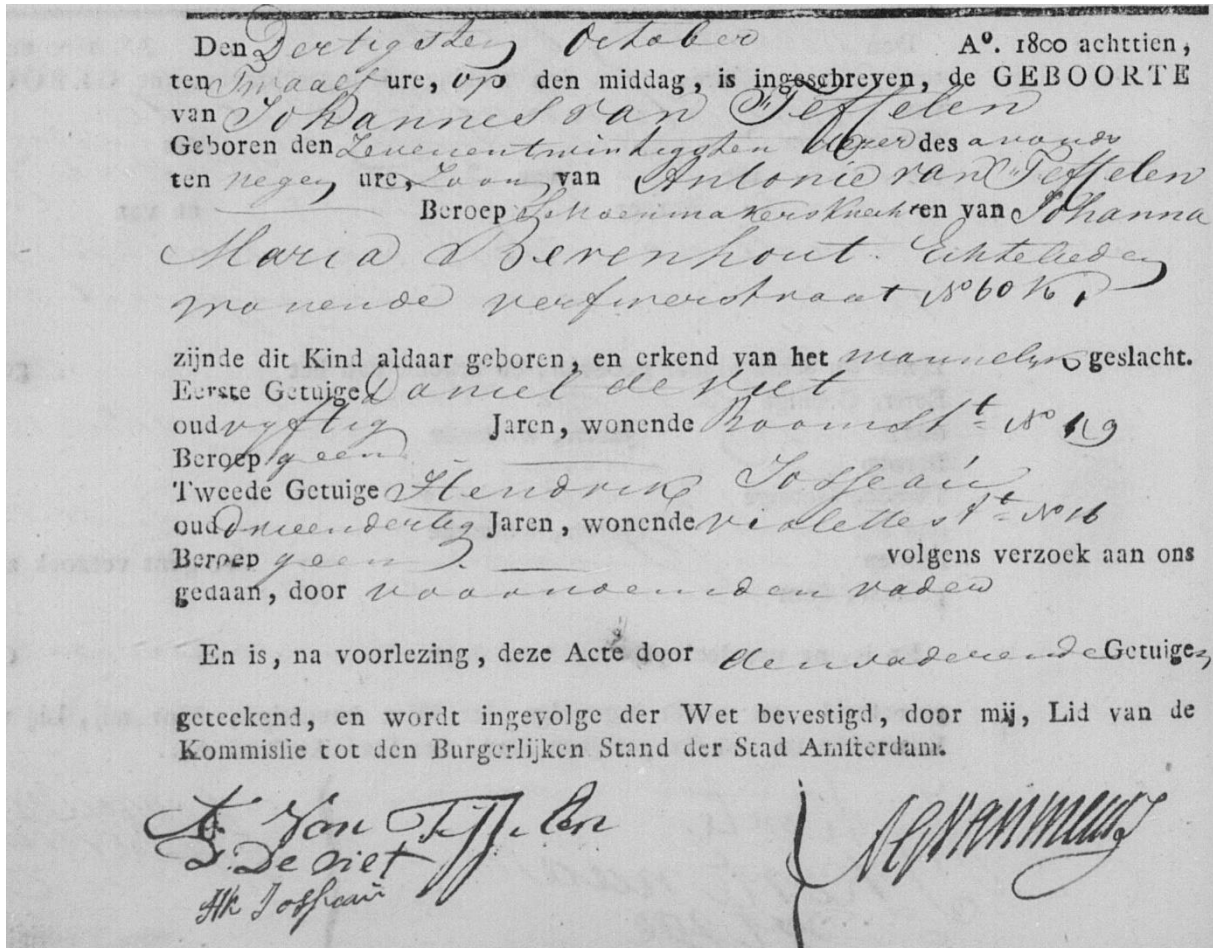 Den Dertigsten October A°. 1800 achttien,
ten Twaalf ure, op den middag, is ingeschreven, de GEBOORTE
van Johannes van Teffelen
Geboren den Zevenentwintigsten dezer des avonds
ten negen ure, Zoon van Antonie van Teffelen
Beroep Schoenmakersknecht en van Johanna
Maria Berenhout Echtelieden
wonende verfwerstraat N° 60 K 1
zijnde dit Kind aldaar geboren, en erkend van het mannelyk geslacht.
Eerste Getuige Daniel de Niet
oud vyftig Jaren, wonende Boomst N° 19
Beroep geen
Tweede Getuige Hendrik Josseau
oud drieendertig Jaren, wonende violettest N° 16
Beroep geen volgens verzoek aan ons
gedaan, door voornoemden vader
En is, na voorlezing, deze Acte door den vader en de Getuigen
geteekend, en wordt ingevolge der Wet bevestigd, door mij, Lid van de
Kommissie tot den Burgerlijken Stand der Stad Amsterdam.
A. Van Teffelen
D. De niet
Hk Josseau